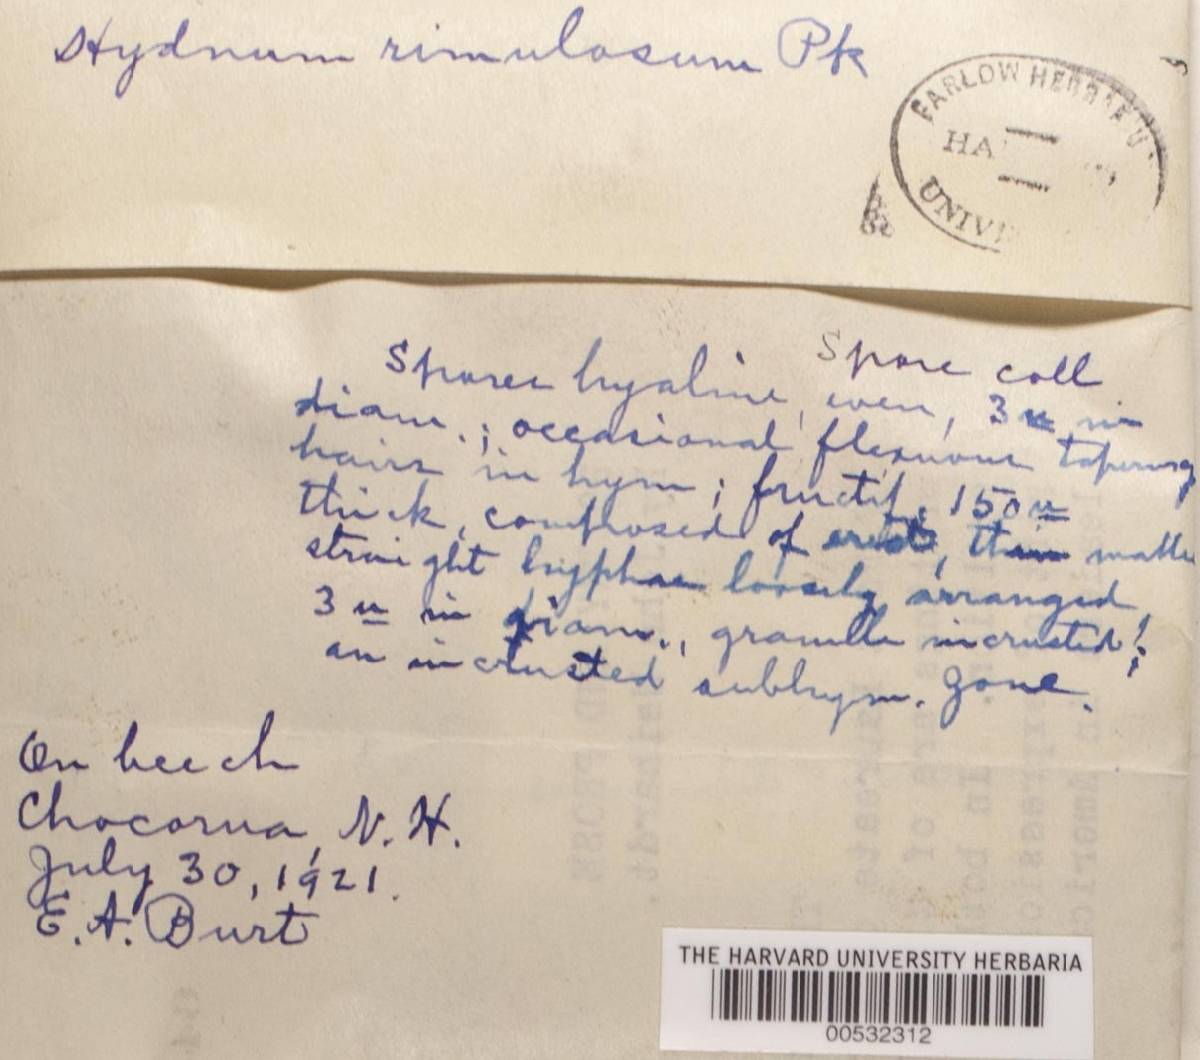 Hydnum rimulosum Pk
FARLOW HERBARIU
HA
UNIV
Spore coll
Spores hyaline, even, 3 u in
diam.; occasional flexuous tapering
hairs in hym; fructif. 150 u
thick, composed of erect, matted
straight hyphae loosely arranged,
3 u in diam., granule incrusted;
an incrusted subhym. zone.
On beech
Chocorua, N.H.
July 30, 1921.
E. A. Burt
THE HARVARD UNIVERSITY HERBARIA
00532312